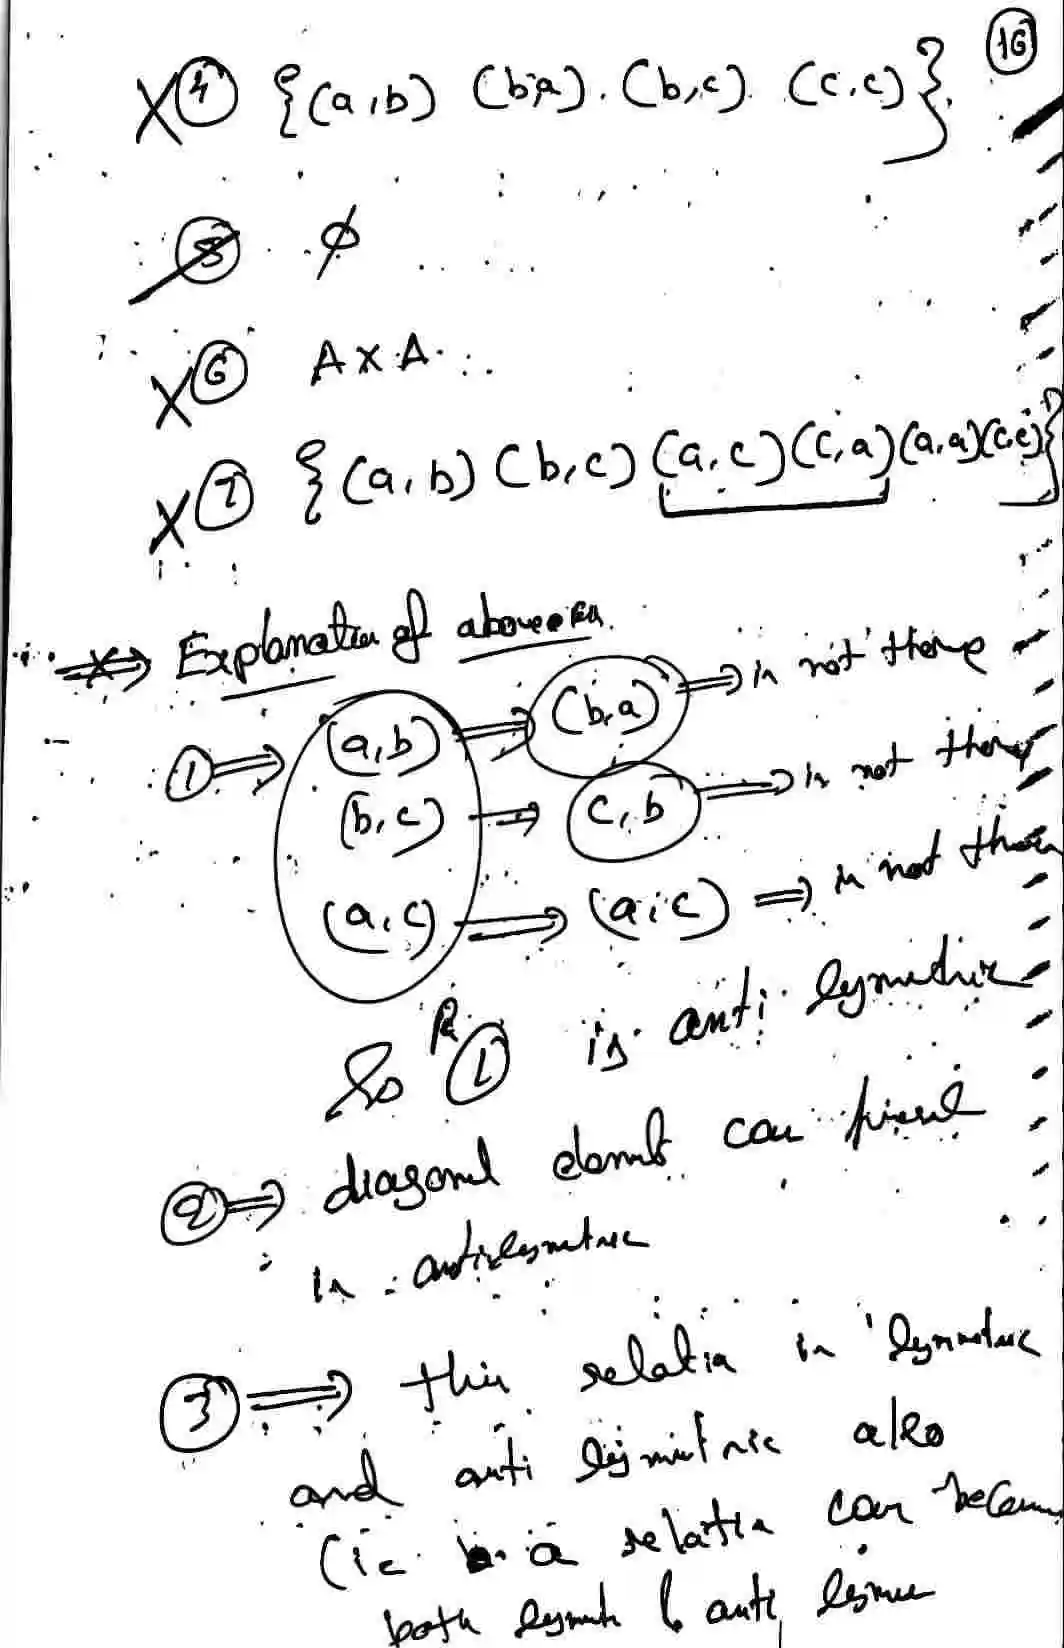 16
X ④ {(a,b) (b,a). (b,c). (c,c)}
⑤ ϕ
X ⑥ A X A
X ⑦ {(a,b) (b,c) (a,c) (c,a) (a,a) (c,c)}
⇒ Explanation of above ex.
① ⇒ (a,b) ⇒ (b,a) ⇒ is not there
(b,c) ⇒ c,b ⇒ is not there
(a,c) ⇒ (a,c) ⇒ is not there
So R① is anti symetric
② ⇒ diagonal elemt can
in antisymetric
③ ⇒ this relation is symmetric
and anti symmetric also
(ie a relation can become
both & anti